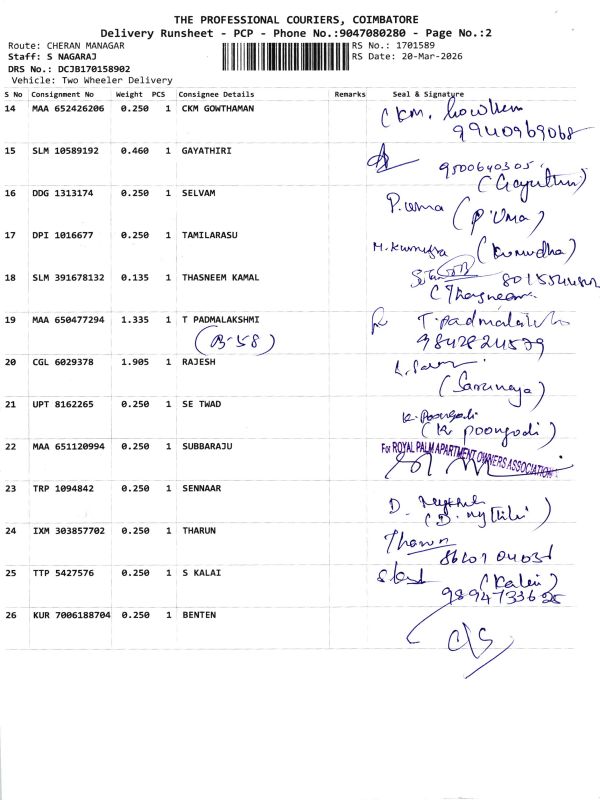 THE PROFESSIONAL COURIERS, COIMBATORE
Delivery Runsheet - PCP - Phone No.:9047080280 - Page No.:2
Route: CHERAN MANAGAR RS No.: 1701589
Staff: S NAGARAJ RS Date: 20-Mar-2026
DRS No.: DCJB170158902
Vehicle: Two Wheeler Delivery
S No Consignment No Weight PCS Consignee Details Remarks Seal & Signature
14 MAA 652426206 0.250 1 CKM GOWTHAMAN CKM.
9940969068
15 SLM 10589192 0.460 1 GAYATHIRI 9500640305
(Gayathiri)
16 DDG 1313174 0.250 1 SELVAM P.uma (P.Uma)
17 DPI 1016677 0.250 1 TAMILARASU
18 SLM 391678132 0.135 1 THASNEEM KAMAL
(Thasneem
19 MAA 650477294 1.335 1 T PADMALAKSHMI T.padmalakshmi
(B-58) 9842824579
20 CGL 6029378 1.905 1 RAJESH
21 UPT 8162265 0.250 1 SE TWAD K.Poongodi
(K poongodi)
22 MAA 651120994 0.250 1 SUBBARAJU For ROYAL PALM APARTMENT OWNERS ASSOCIATION
23 TRP 1094842 0.250 1 SENNAAR D.
(D.
24 IXM 303857702 0.250 1 THARUN Tharun
25 TTP 5427576 0.250 1 S KALAI (Kalai)
9894733625
26 KUR 7006188704 0.250 1 BENTEN C/S